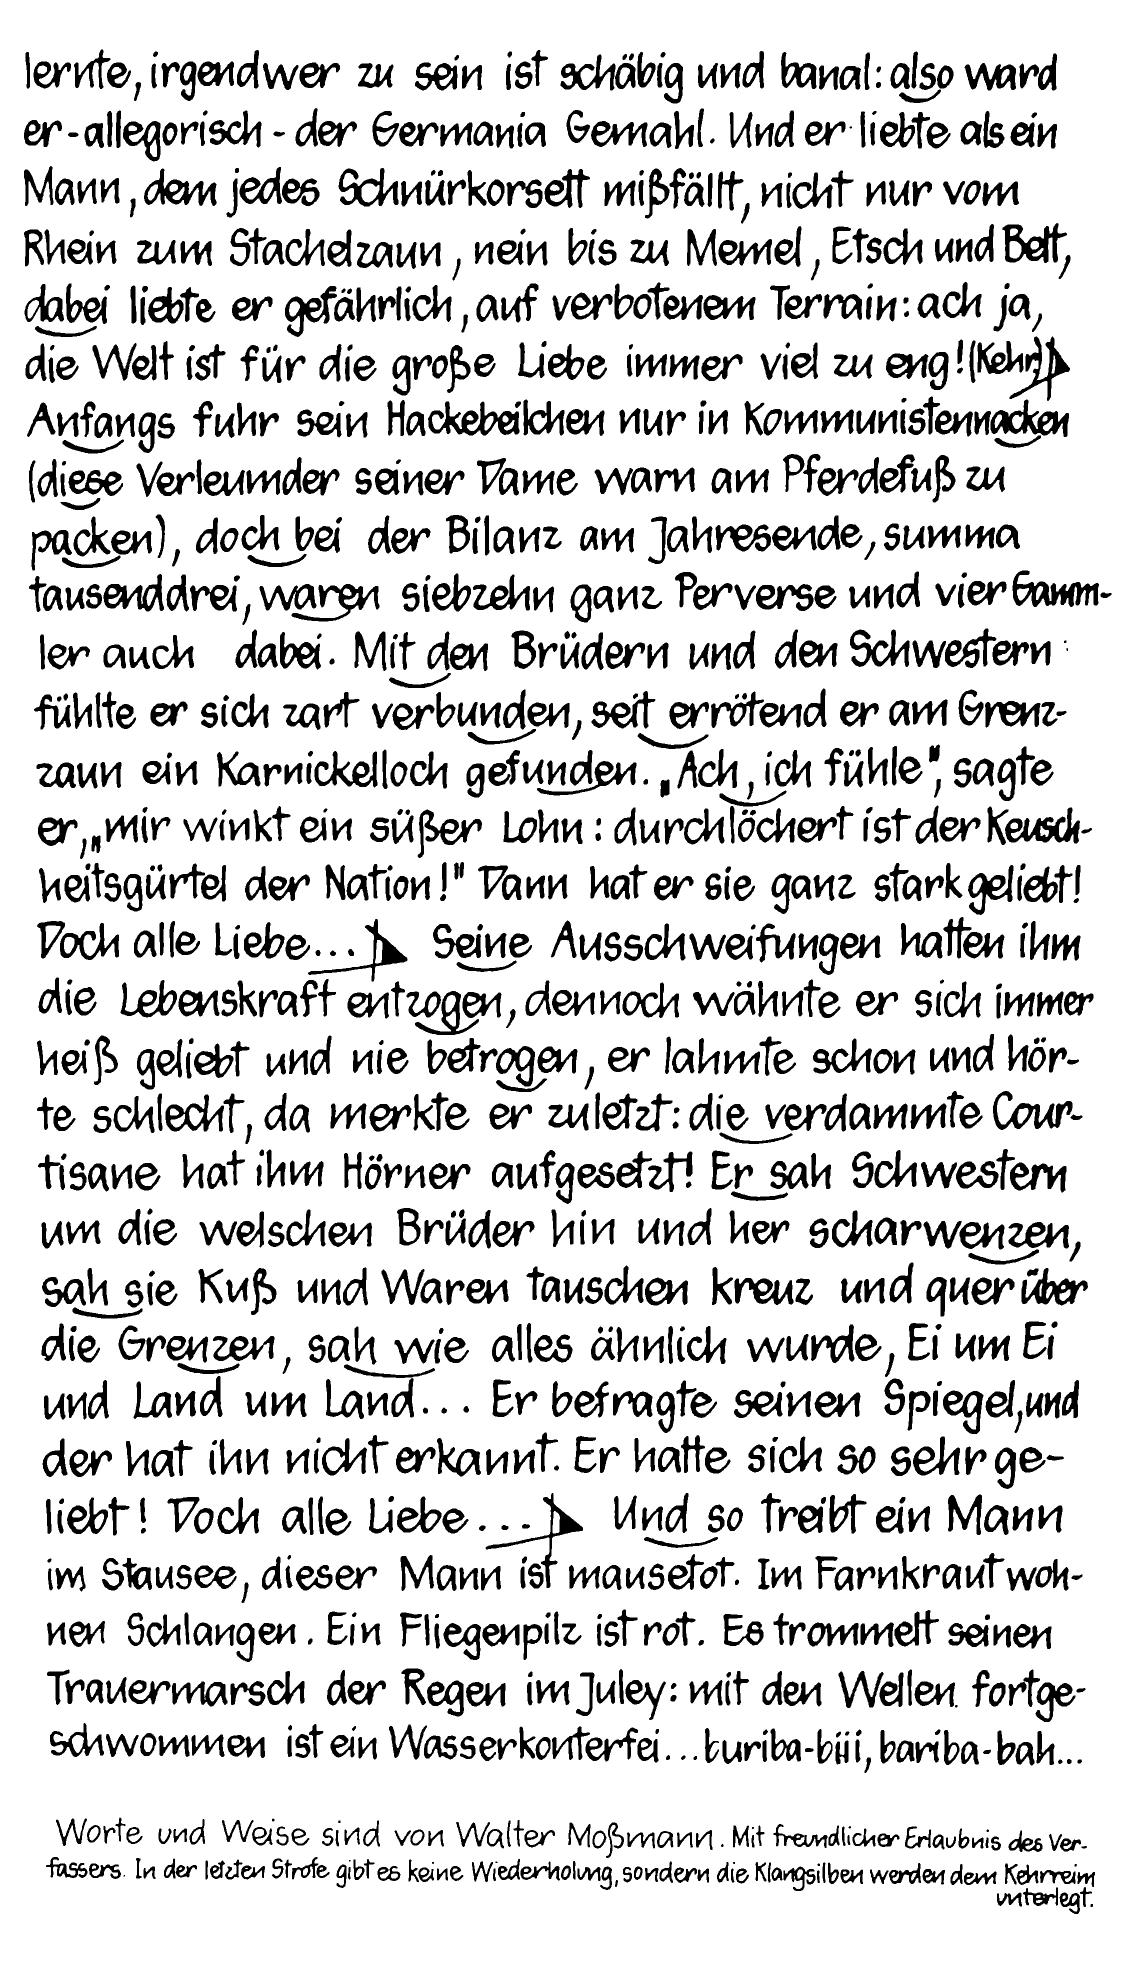 lernte, irgendwer zu sein ist schäbig und banal: also ward
er - allegorisch - der Germania Gemahl. Und er liebte als ein
Mann, dem jedes Schnürkorsett mißfällt, nicht nur vom
Rhein zum Stachelzaun, nein bis zu Memel, Etsch und Belt,
dabei liebte er gefährlich, auf verbotenem Terrain: ach ja,
die Welt ist für die große Liebe immer viel zu eng! (Kehr.)
Anfangs fuhr sein Hackebeilchen nur in Kommunistennacken
(diese Verleumder seiner Dame warn am Pferdefuß zu
packen), doch bei der Bilanz am Jahresende, summa
tausenddrei, waren siebzehn ganz Perverse und vier Gamm-
ler auch dabei. Mit den Brüdern und den Schwestern
fühlte er sich zart verbunden, seit errötend er am Grenz-
zaun ein Karnickelloch gefunden. „Ach, ich fühle", sagte
er, „mir winkt ein süßer Lohn: durchlöchert ist der Keusch-
heitsgürtel der Nation!" Dann hat er sie ganz stark geliebt!
Doch alle Liebe... Seine Ausschweifungen hatten ihm
die Lebenskraft entzogen, dennoch wähnte er sich immer
heiß geliebt und nie betrogen, er lahmte schon und hör-
te schlecht, da merkte er zuletzt: die verdammte Cour-
tisane hat ihm Hörner aufgesetzt! Er sah Schwestern
um die welschen Brüder hin und her scharwenzen,
sah sie Kuß und Waren tauschen kreuz und quer über
die Grenzen, sah wie alles ähnlich wurde, Ei um Ei
und Land um Land... Er befragte seinen Spiegel, und
der hat ihn nicht erkannt. Er hatte sich so sehr ge-
liebt! Doch alle Liebe... Und so treibt ein Mann
im Stausee, dieser Mann ist mausetot. Im Farnkraut woh-
nen Schlangen. Ein Fliegenpilz ist rot. Es trommelt seinen
Trauermarsch der Regen im Juley: mit den Wellen fortge-
schwommen ist ein Wasserkonterfei... turiba-biii, bariba-bah...
Worte und Weise sind von Walter Moßmann. Mit freundlicher Erlaubnis des Ver-
fassers. In der letzten Strofe gibt es keine Wiederholung, sondern die Klangsilben werden dem Kehrreim
unterlegt.